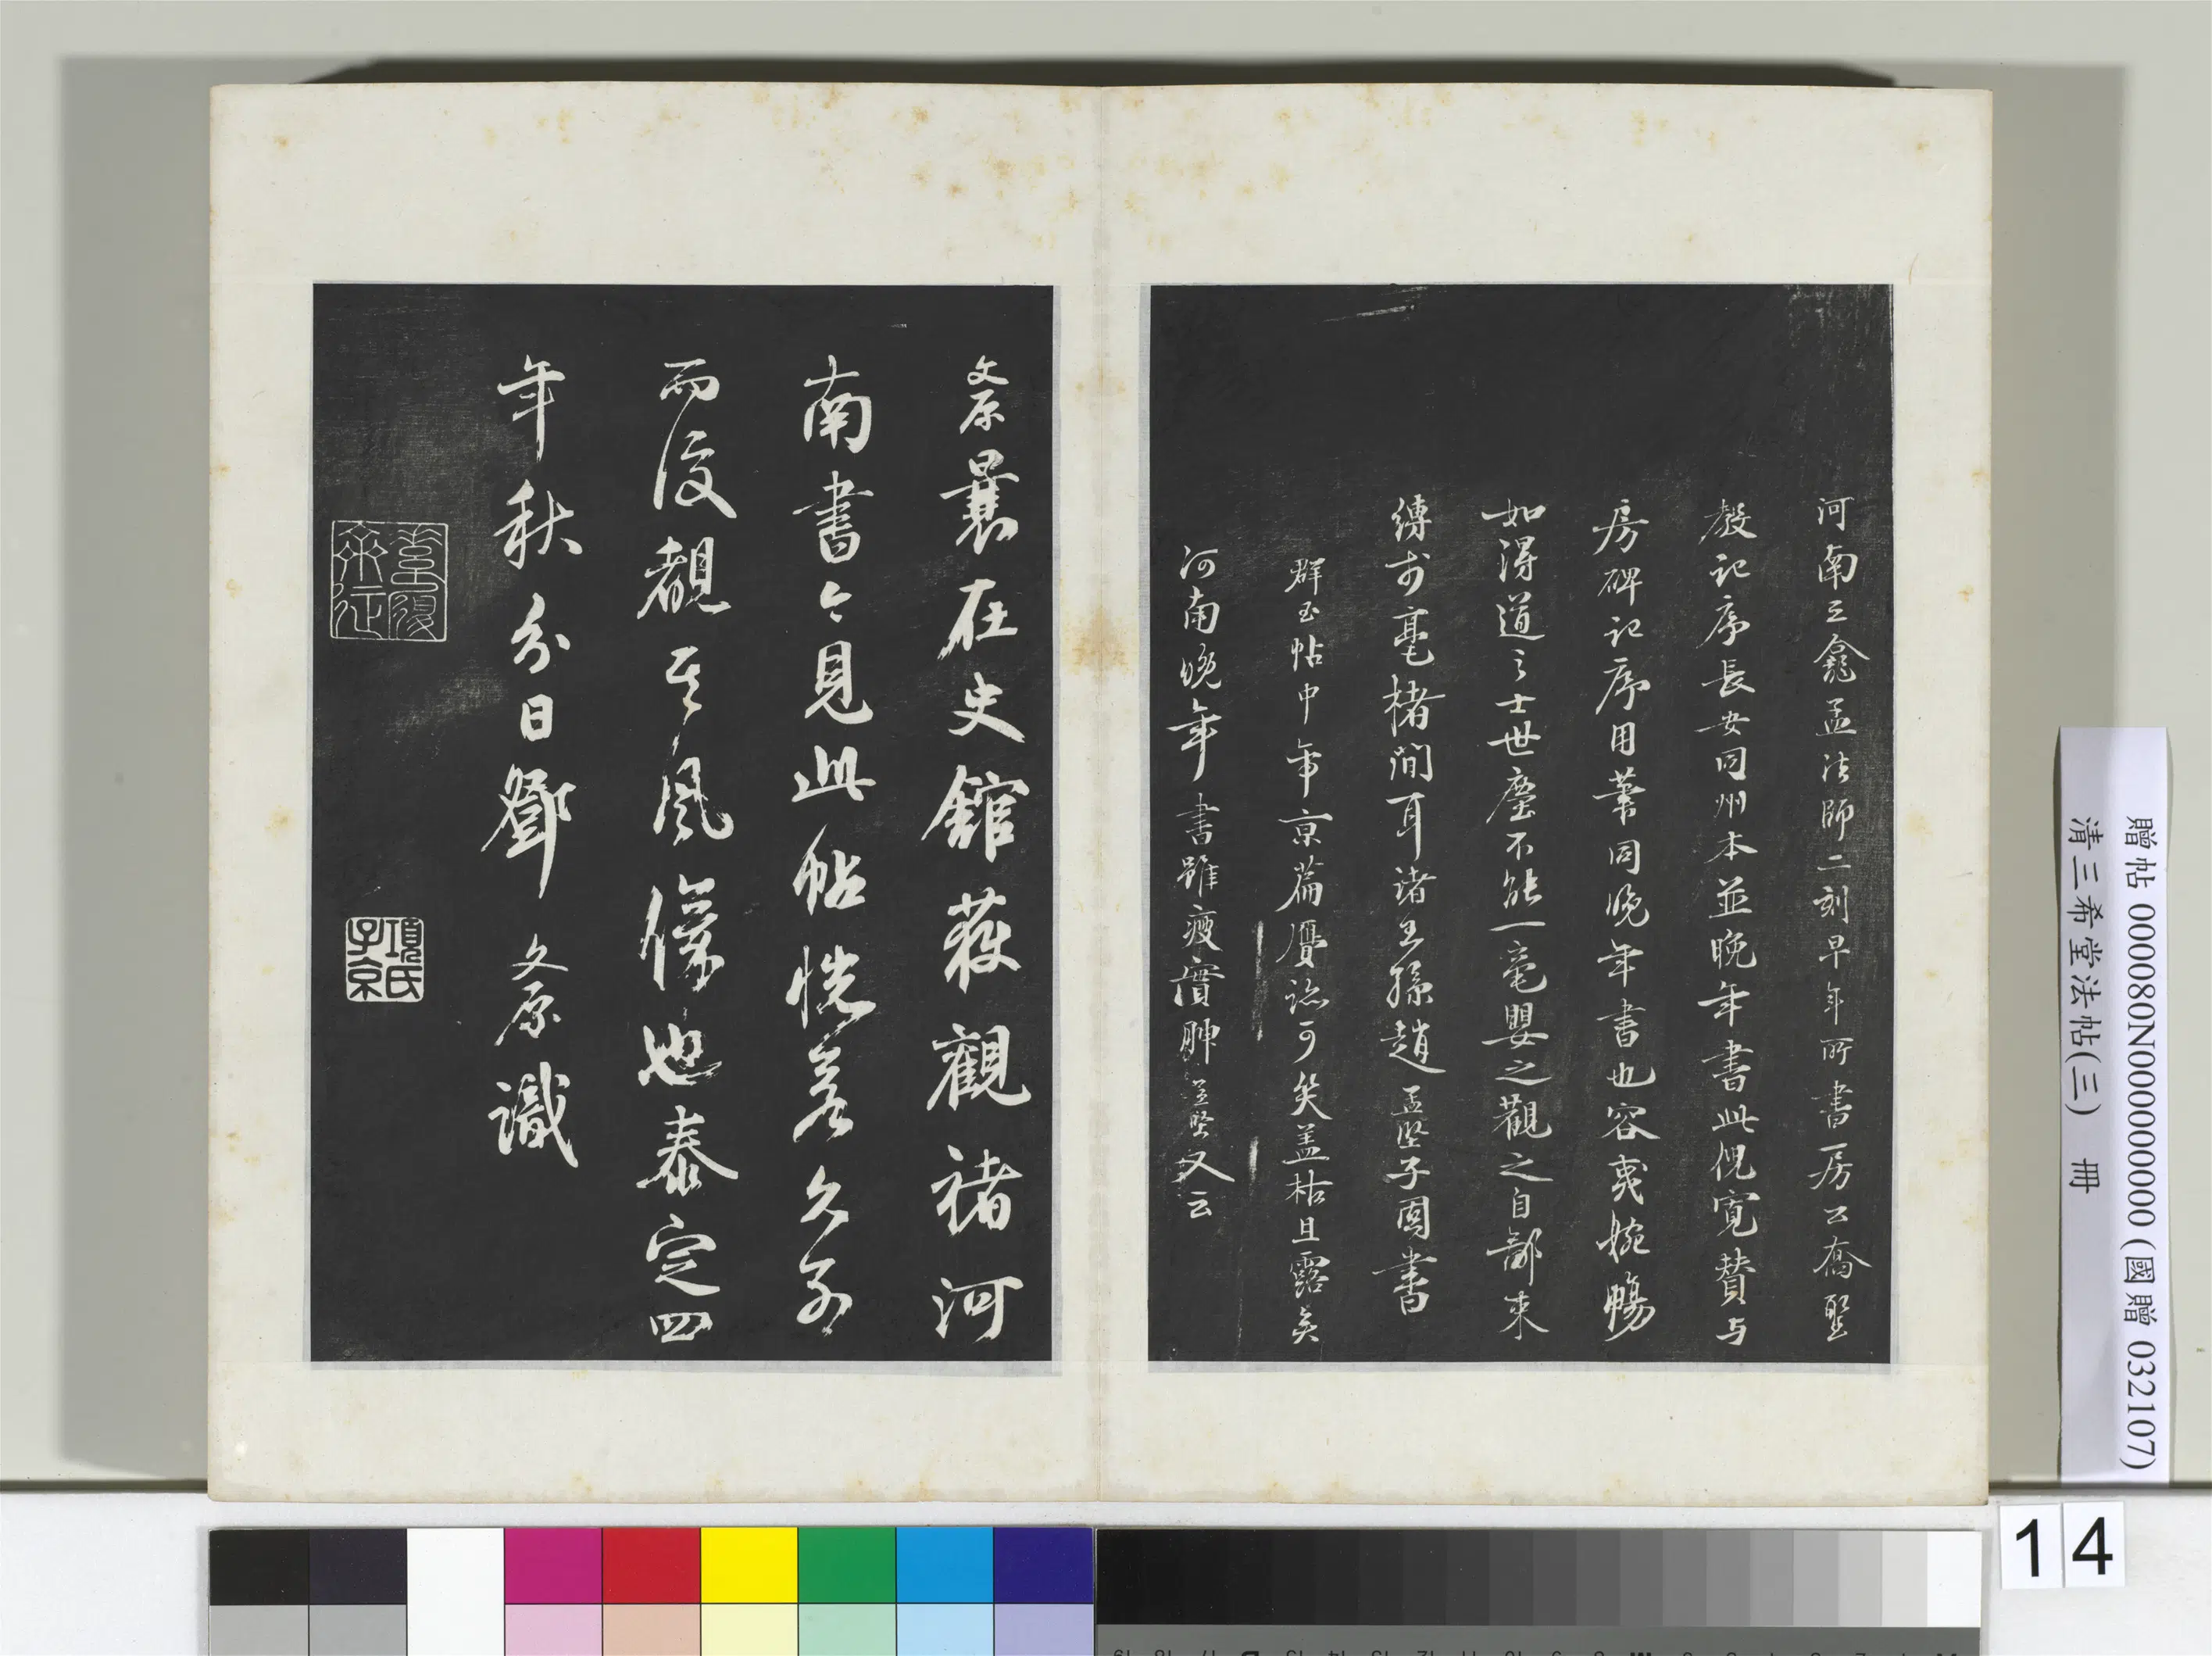 河南三龕孟法師二刻早年所書房公喬聖
教記序長安同州本並晚年書此倪寬贊与
房碑記序用筆同晚年書也容夷婉暢
如得道之士世塵不能一毫嬰之觀之自鄙束
縛於毫楮間耳諸王孫趙孟堅子固書
群玉帖中帝京篇贗跡可笑盖枯且露矣
河南晚年書雖瘦實腴孟堅又云
文原曩在史館获觀褚河
南書今見此帖恍若久別
而後覩其風儀也泰定四
年秋分日鄧文原識
項氏子京
贈帖 000080N000000000 (國贈 032107)
清三希堂法帖(三) 冊
14